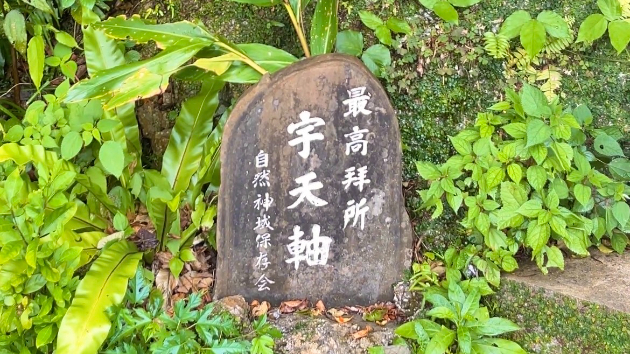 最高拝所
宇天軸
自然神城保存会